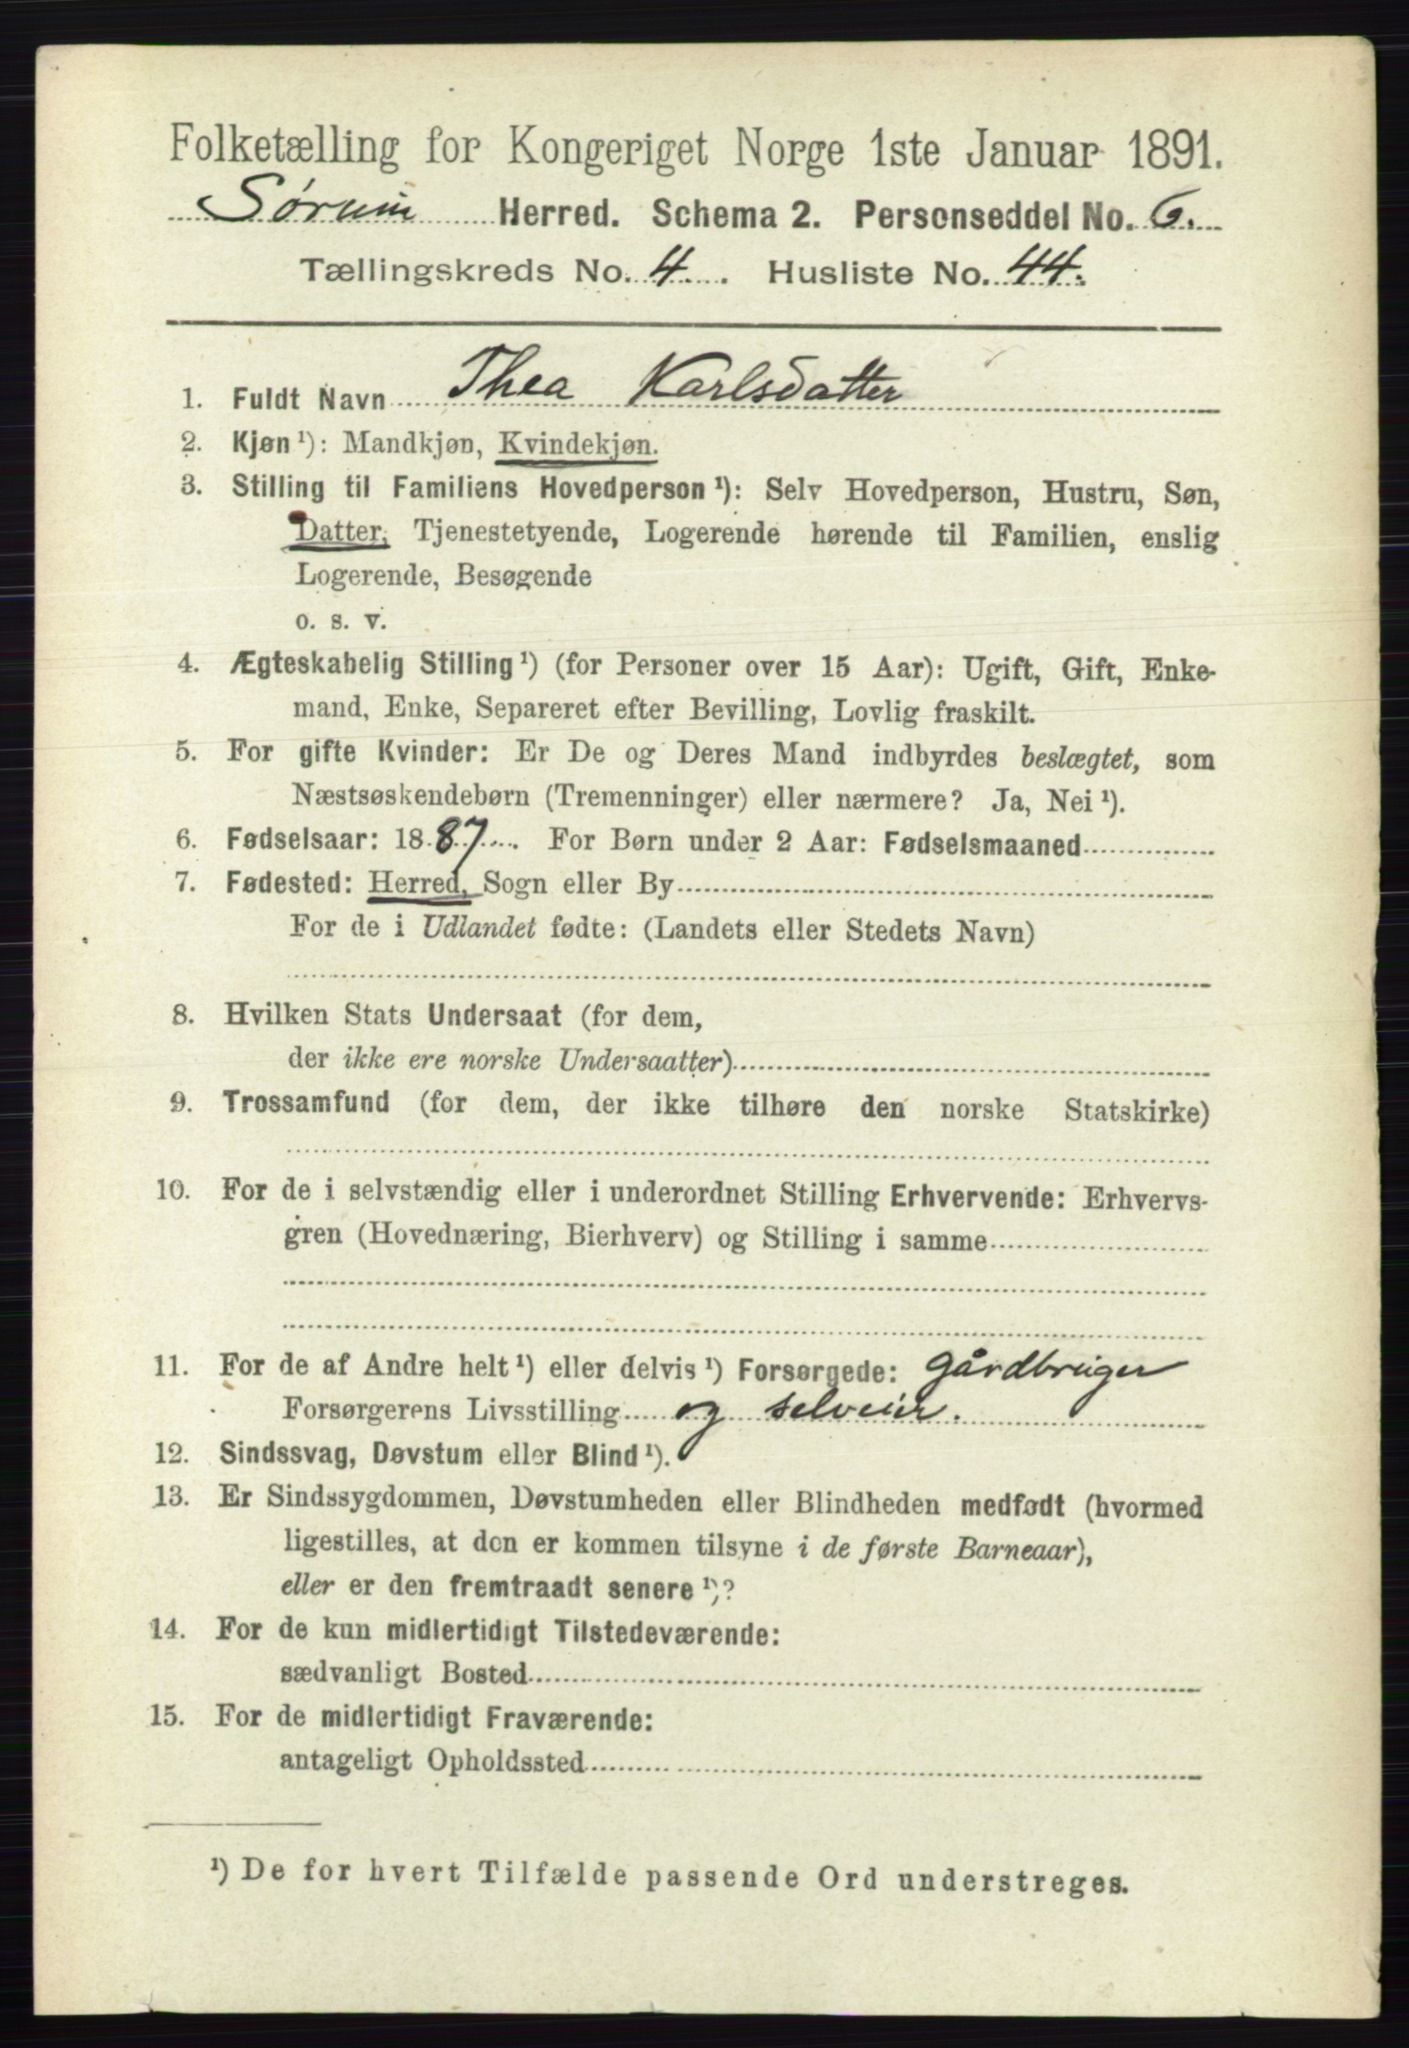 Folketælling for Kongeriget Norge 1ste Januar 1891.
Sørum Herred. Schema 2. Personseddel No. 6.
Tællingskreds No. 4. Husliste No. 44.
1. Fuldt Navn Thea Karlsdatter
2. Kjøn ¹): Mandkjøn, Kvindekjøn.
3. Stilling til Familiens Hovedperson ¹): Selv Hovedperson, Hustru, Søn,
Datter, Tjenestetyende, Logerende hørende til Familien, enslig
Logerende, Besøgende
o. s. v.
4. Ægteskabelig Stilling ¹) (for Personer over 15 Aar): Ugift, Gift, Enke-
mand, Enke, Separeret efter Bevilling, Lovlig fraskilt.
5. For gifte Kvinder: Er De og Deres Mand indbyrdes beslægtet, som
Næstsøskendebørn (Tremenninger) eller nærmere? Ja, Nei ¹).
6. Fødselsaar: 1887. For Børn under 2 Aar: Fødselsmaaned
7. Fødested: Herred, Sogn eller By
For de i Udlandet fødte: (Landets eller Stedets Navn)
8. Hvilken Stats Undersaat (for dem,
der ikke ere norske Undersaatter)
9. Trossamfund (for dem, der ikke tilhøre den norske Statskirke)
10. For de i selvstændig eller i underordnet Stilling Erhvervende: Erhvervs-
gren (Hovednæring, Bierhverv) og Stilling i samme
11. For de af Andre helt ¹) eller delvis ¹) Forsørgede: gårdbruger
Forsørgerens Livsstilling og selveier.
12. Sindssvag, Døvstum eller Blind ¹).
13. Er Sindssygdommen, Døvstumheden eller Blindheden medfødt (hvormed
ligestilles, at den er kommen tilsyne i de første Barneaar),
eller er den fremtraadt senere ¹)?
14. For de kun midlertidigt Tilstedeværende:
sædvanligt Bosted
15. For de midlertidigt Fraværende:
antageligt Opholdssted
¹) De for hvert Tilfælde passende Ord understreges.